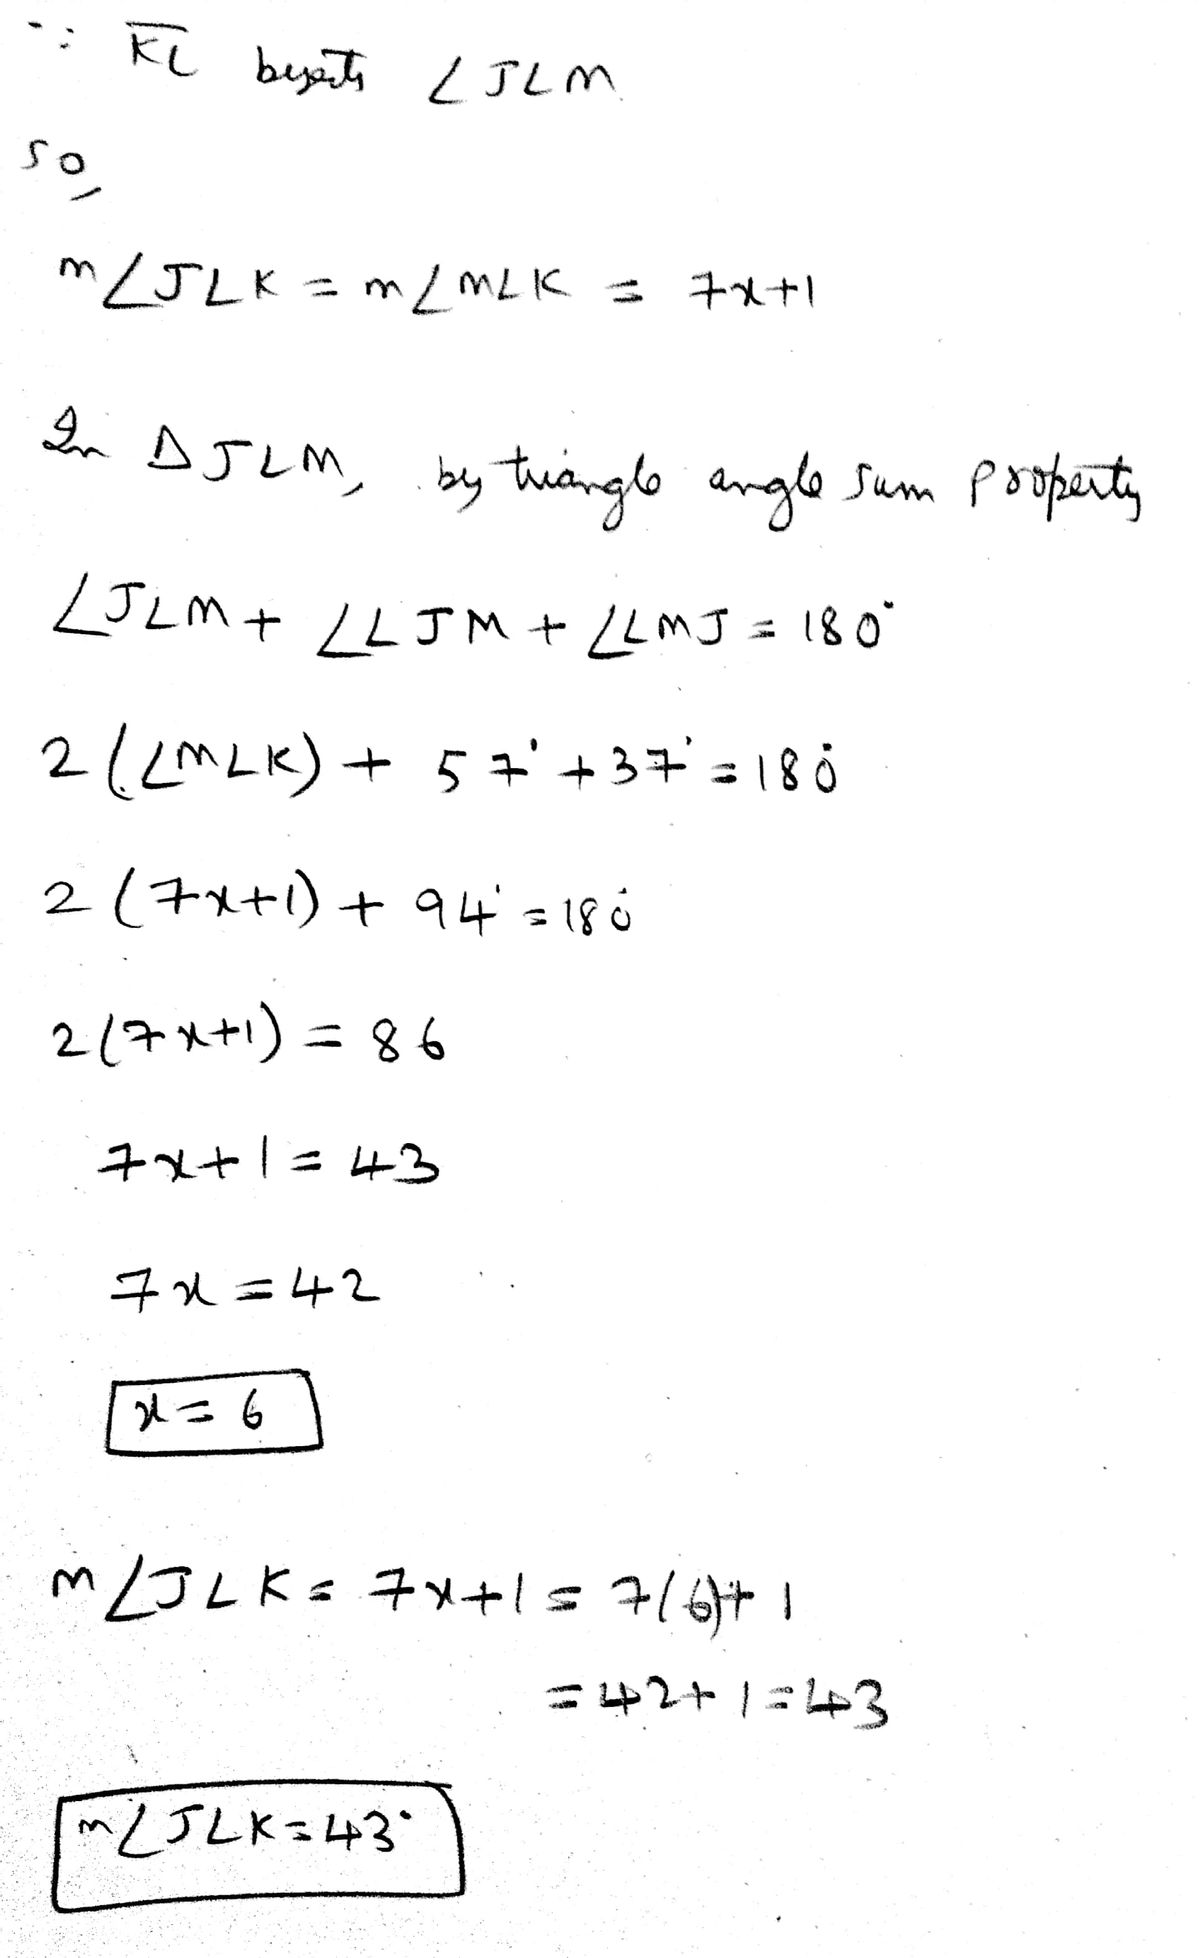 ∵ KL bisects ∠JLM
so,
m∠JLK = m∠MLK = 7x+1
In ΔJLM, by triangle angle sum property
∠JLM + ∠LJM + ∠LMJ = 180°
2(∠MLK) + 57° + 37° = 180°
2(7x+1) + 94° = 180°
2(7x+1) = 86
7x+1 = 43
7x = 42
x = 6
m∠JLK = 7x+1 = 7(6)+1
= 42+1 = 43
m∠JLK = 43°